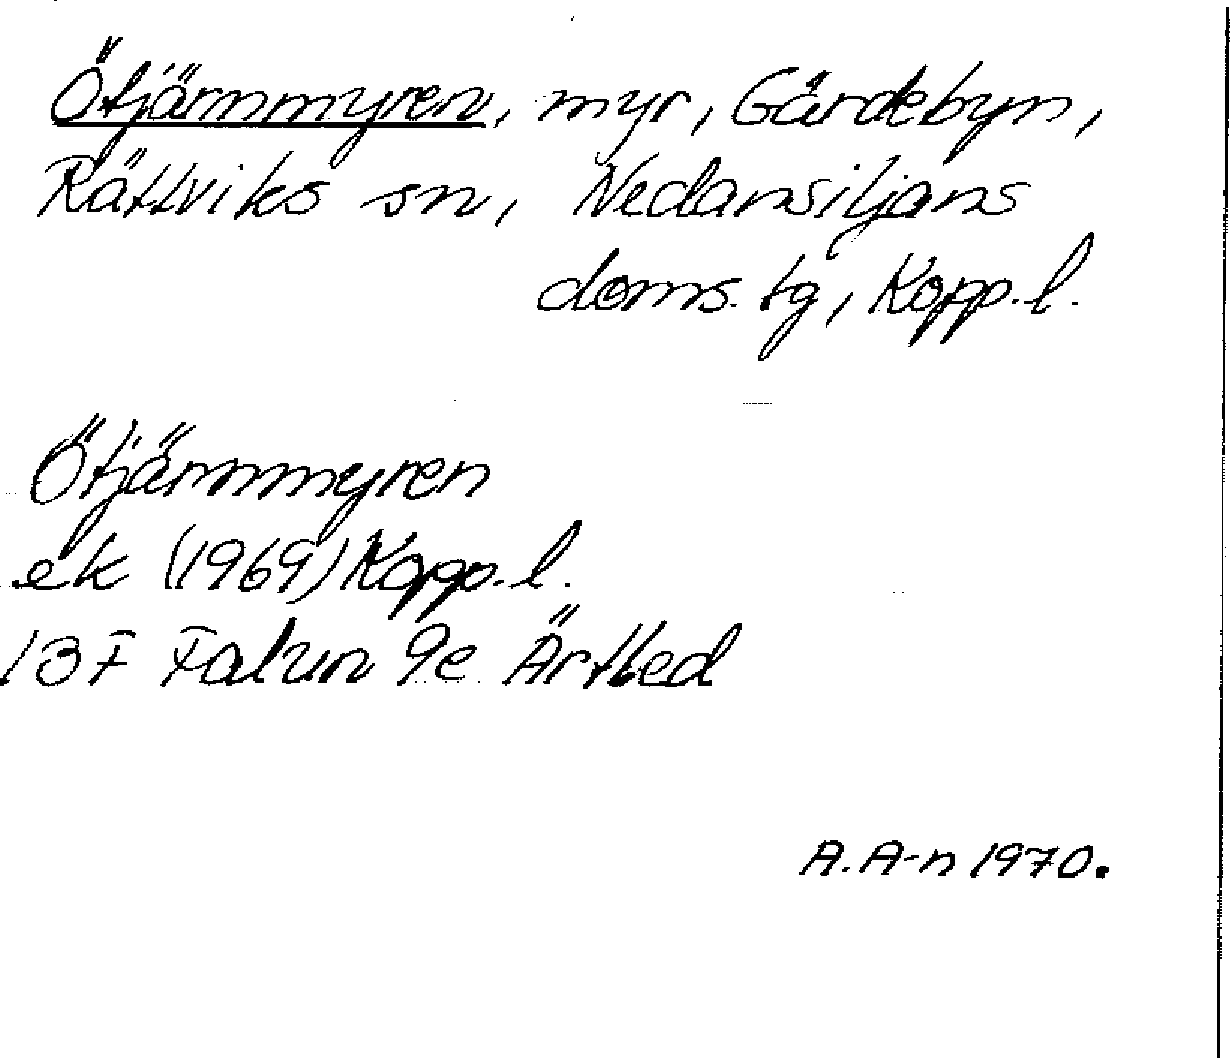 Ötjärnmyren, myr, Gärdebyn,
Rättviks sn, Nedansiljans
doms. tg, Kopp. l.
Ötjärnmyren
ek (1969) Kopp. l.
13F Falun 9e Ärtled
A. A-n 1970.